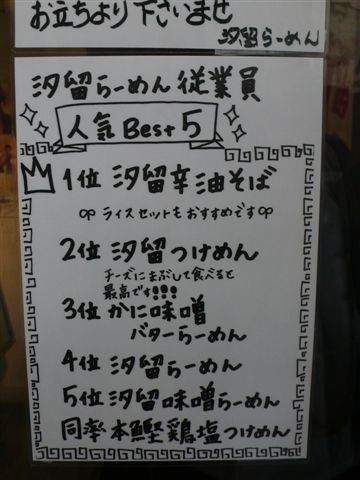 お立ちより下さいませ
汐留らーめん
汐留らーめん従業員
人気Best5
1位 汐留辛油そば
ライスセットもおすすめです
2位 汐留つけめん
チーズにまぶして食べると
最高です!!!
3位 かに味噌
バターらーめん
4位 汐留らーめん
5位 汐留味噌らーめん
同率本鰹鶏塩つけめん